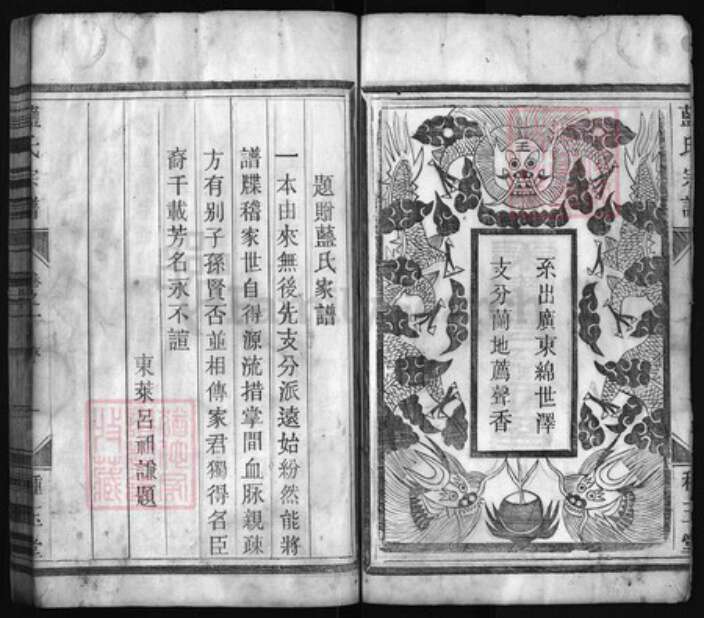 系出廣東綿世澤
支分蘭地薦聲香
題贈藍氏家譜
一本由來無後先支分派遠始紛然能將
譜牒稽家世自得源流措掌間血脉親疎
方有別子孫賢否並相傳家君獨得名臣
裔千載芳名永不諠
東萊呂祖謙題
藍氏宗譜